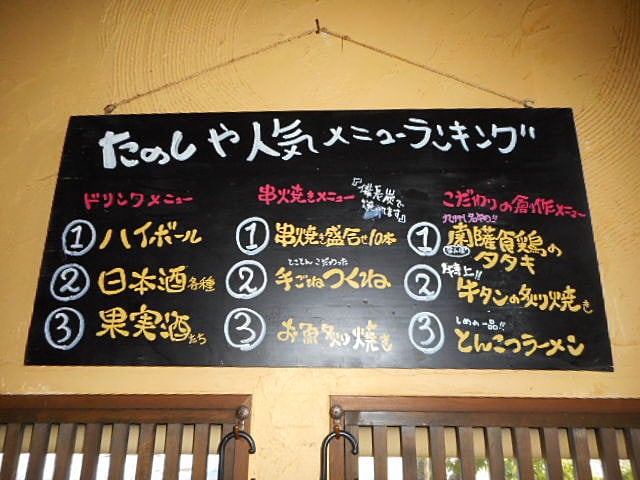 たのしや人気メニューランキング
ドリンクメニュー
① ハイボール
② 日本酒各種
③ 果実酒たち
串焼きメニュー
『備長炭で
焼いてます』
① 串焼き盛合せ10本
とことんこだわった
② 手ごねつくね
③ お魚炙り焼き
こだわりの創作メニュー
① 南薩食鶏の
タタキ
特上!!
② 牛タンの炙り焼き
しめの一品!!
③ とんこつラーメン